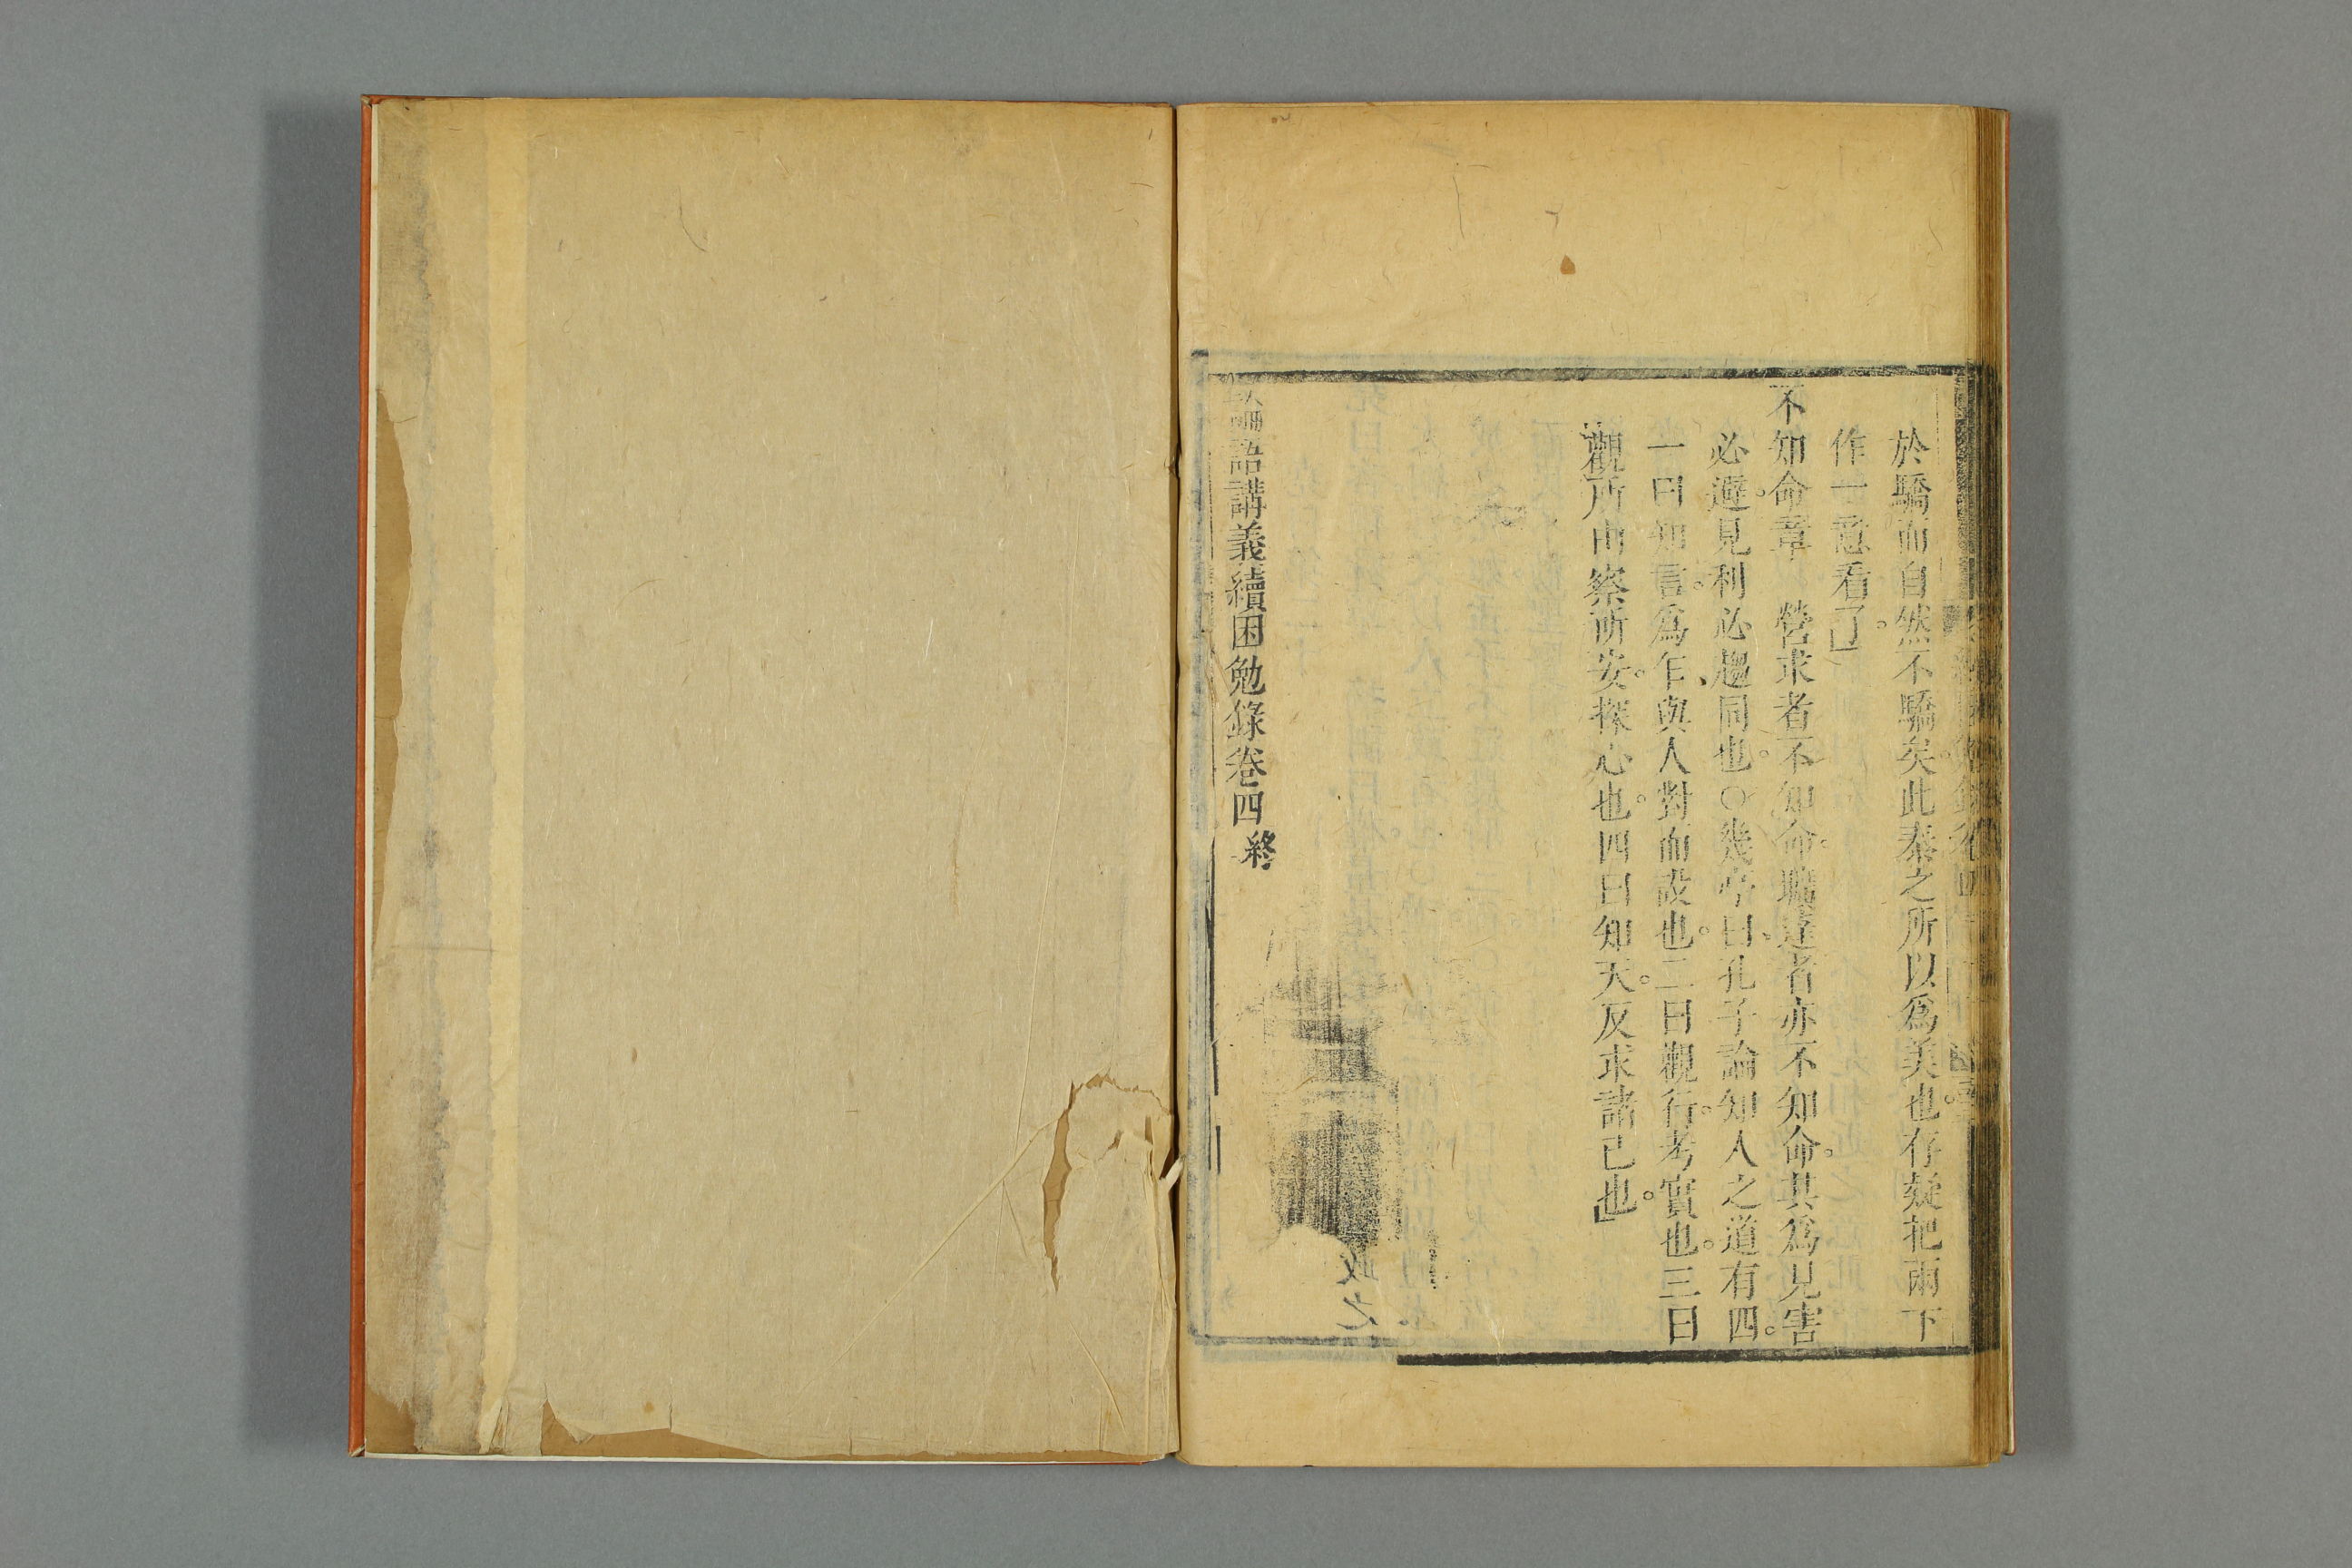 於驕而自然不驕矣此泰之所以爲美也。存疑把兩下
作一意看了。」
不知命章　營求者不知命。曠達者亦不知命。其爲見害
必避。見利必趨同也。○幾亭曰、孔子論知人之道有四。
一曰知言。爲乍與人對而設也。二曰觀行。考實也。三曰
觀所由察所安。探心也。四曰知天。反求諸已也。」
論語講義續困勉錄卷四終